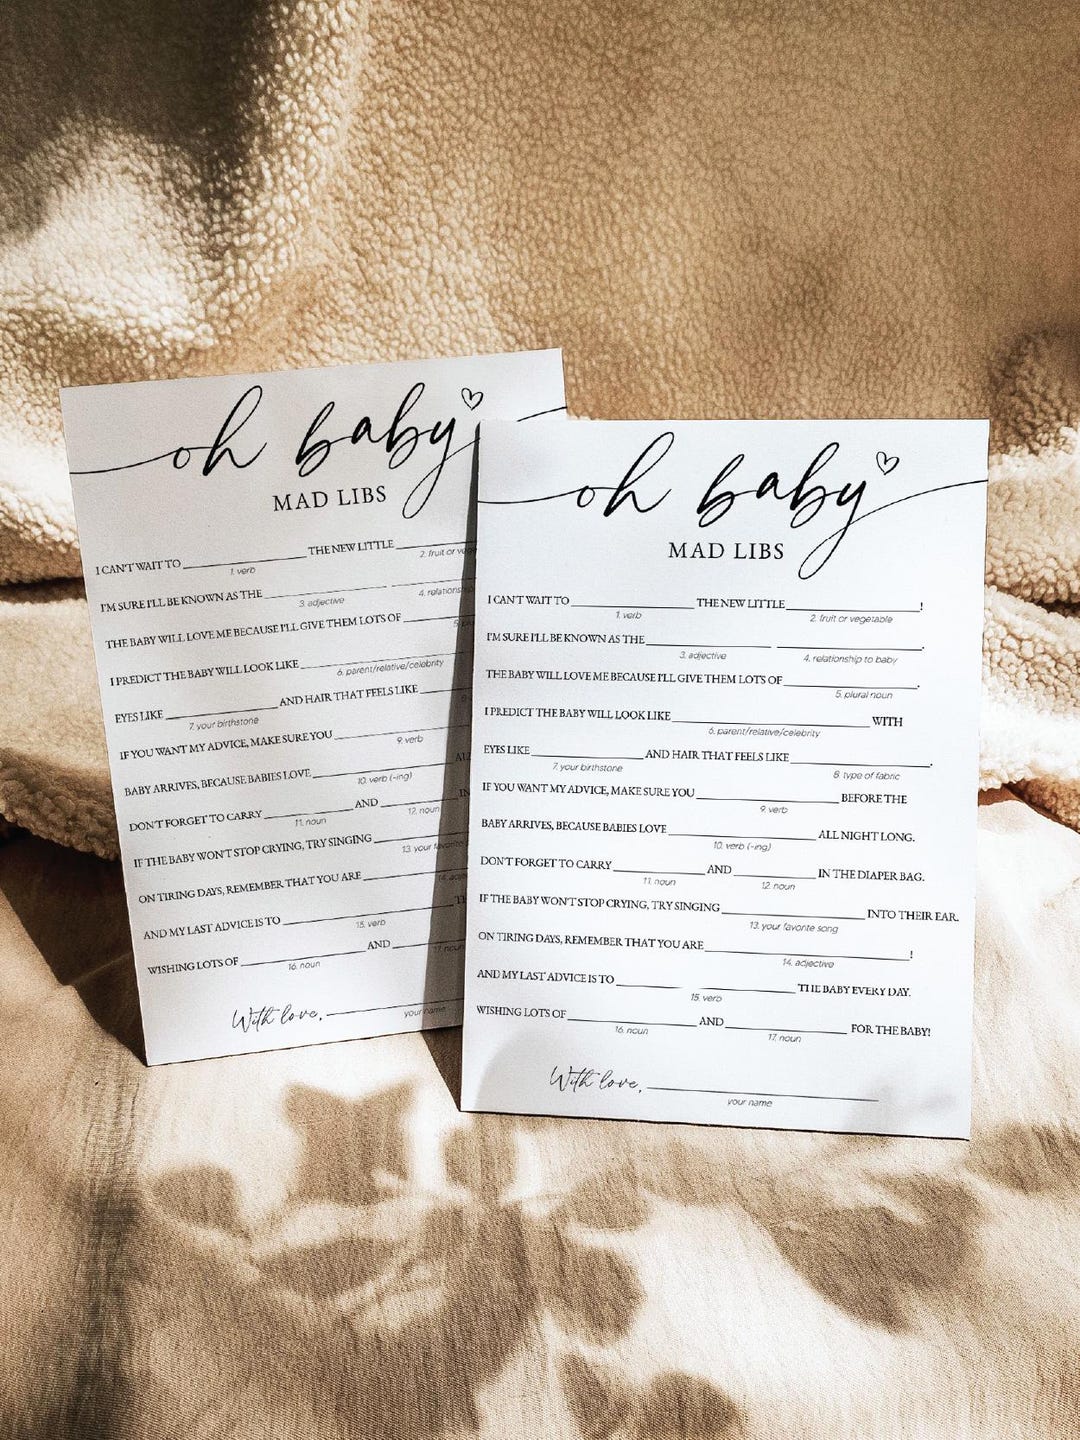 oh baby
MAD LIBS
I CAN'T WAIT TO ____ THE NEW LITTLE ____
1. verb 2. fruit or veg
I'M SURE I'LL BE KNOWN AS THE ____ ____
3. adjective 4. relationship
THE BABY WILL LOVE ME BECAUSE I'LL GIVE THEM LOTS OF ____
5. plu
I PREDICT THE BABY WILL LOOK LIKE ____
6. parent/relative/celebrity
EYES LIKE ____ AND HAIR THAT FEELS LIKE ____
7. your birthstone
IF YOU WANT MY ADVICE, MAKE SURE YOU ____
9. verb
BABY ARRIVES, BECAUSE BABIES LOVE ____
10. verb (-ing)
DON'T FORGET TO CARRY ____ AND ____ IN
11. noun 12. noun
IF THE BABY WON'T STOP CRYING, TRY SINGING ____
13. your favorite
ON TIRING DAYS, REMEMBER THAT YOU ARE ____
14. adje
AND MY LAST ADVICE IS TO ____
15. verb
WISHING LOTS OF ____ AND ____
16. noun 17. noun
With love, ____
your name
oh baby
MAD LIBS
I CAN'T WAIT TO ____ THE NEW LITTLE ____!
1. verb 2. fruit or vegetable
I'M SURE I'LL BE KNOWN AS THE ____ ____.
3. adjective 4. relationship to baby
THE BABY WILL LOVE ME BECAUSE I'LL GIVE THEM LOTS OF ____.
5. plural noun
I PREDICT THE BABY WILL LOOK LIKE ____ WITH
6. parent/relative/celebrity
EYES LIKE ____ AND HAIR THAT FEELS LIKE ____.
7. your birthstone 8. type of fabric
IF YOU WANT MY ADVICE, MAKE SURE YOU ____ BEFORE THE
9. verb
BABY ARRIVES, BECAUSE BABIES LOVE ____ ALL NIGHT LONG.
10. verb (-ing)
DON'T FORGET TO CARRY ____ AND ____ IN THE DIAPER BAG.
11. noun 12. noun
IF THE BABY WON'T STOP CRYING, TRY SINGING ____ INTO THEIR EAR.
13. your favorite song
ON TIRING DAYS, REMEMBER THAT YOU ARE ____!
14. adjective
AND MY LAST ADVICE IS TO ____ THE BABY EVERY DAY.
15. verb
WISHING LOTS OF ____ AND ____ FOR THE BABY!
16. noun 17. noun
With love, ____
your name